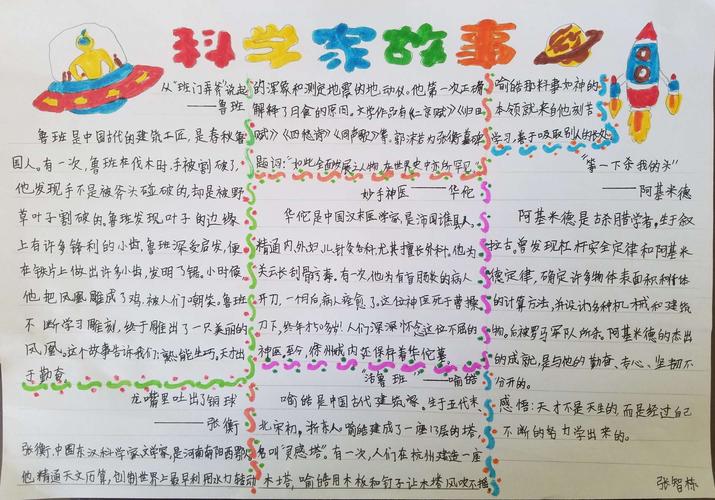 科学家故事
从“班门弄斧”说起
——鲁班
鲁班是中国古代的建筑工匠，是春秋鲁
国人。有一次，鲁班在伐木时，手被割破了，
他发现手不是被斧头碰破的，却是被野
草叶子割破的。鲁班发现叶子的边缘
上有许多锋利的小齿。鲁班深受启发，便
在铁片上做出许多小齿，发明了锯。小时候
他把凤凰雕成了鸡，被人们嘲笑。鲁班
不断学习雕刻，终于雕出了一只美丽的
凤凰。这个故事告诉我们：熟能生巧，天才出
于勤奋。
龙嘴里吐出了铜球
——张衡
张衡，中国东汉科学家、文学家，是河南南阳西鄂人。
他精通天文历算，创制世界上最早利用水力转动
的浑象和测定地震的地动仪。他第一次正确
解释了月食的原因。文学作品有《二京赋》《归田
赋》《四愁诗》《同声歌》等。郭沫若为张衡墓碑
题词：“如此全面发展之人物，在世界史中亦所罕见。”
妙手神医——华佗
华佗是中国汉末医学家，是沛国谯县人。
精通内、外、妇、儿、针灸各科，尤其擅长外科。他为
关云长刮骨疗毒。有一次，他为有盲肠炎的病人
开刀，一个月后病痊愈了。这位神医死于曹操
刀下，终年才50多岁！人们深深怀念这位不屈的
神医，至今，徐州城内还保存着华佗墓。
“活鲁班”——喻皓
喻皓是中国古代建筑家。生于五代末
北宋初，浙东人。喻皓建成了一座13层的塔，
名叫“灵感塔”。有一次，人们在杭州建造一座
木塔，喻皓用木板和钉子让木塔风吹不摇
喻皓那料事如神的
本领就来自他刻苦
学习，善于吸取别人的长处。
“等一下杀我的头”
——阿基米德
阿基米德是古希腊学者，生于叙
拉古。曾发现杠杆安全定律和阿基米
德定律，确定许多物体表面积和体
的计算方法，并设计多种机械和建筑
物。后被罗马军队所杀。阿基米德的杰出
的成就，是与他的勤奋、专心、坚韧不
分开的。
感悟：天才不是天生的，而是经过自己
不断的努力学出来的。
张智栋